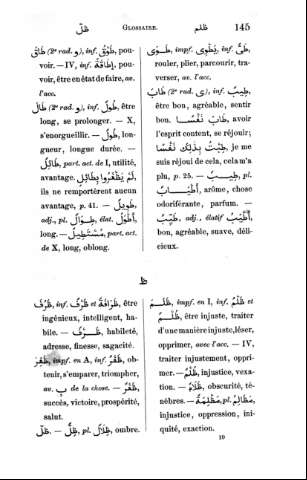 ظَلّ
GLOSSAIRE.
ظلم
145
طَاقَ (2ᵉ rad. و), inf. طَوْق, pou-
voir. — IV, inf. إِطَاقَة, pou-
voir, être en état de faire, av.
l'acc.
طَالَ (2ᵉ rad. و), inf. طُول, être
long, se prolonger. — X,
s'enorgueillir. — طُول, lon-
gueur, longue durée. —
طَائِل, part. act. de I, utilité,
avantage. لَمْ يَظْفَرُوا بِطَائِل,
ils ne remportèrent aucun
avantage, p. 41. — طَوِيل,
adj., pl. طِوَال, élat. أَطْوَل,
long. — مُسْتَطِيل, part. act.
de X, long, oblong.
طَوَى, impf. يَطْوِى, inf. طَىّ,
rouler, plier, parcourir, tra-
verser, av. l'acc.
طَابَ (2ᵉ rad. ى), inf. طِيب,
être bon, agréable, sentir
bon. طَابَ نَفْسًا, avoir
l'esprit content, se réjouir;
طِبْتُ بِذٰلِكَ نَفْسًا, je me
suis réjoui de cela, cela m'a
plu, p. 25. — طِيب, pl.
أَطْيَاب, arôme, chose
odoriférante, parfum. —
طَيِّب, adj., élatif أَطْيَب,
bon, agréable, suave, déli-
cieux.
ظ
ظَرُفَ, inf. ظَرْف et ظَرَافَة, être
ingénieux, intelligent, ha-
bile. — ظَرْف, habileté,
adresse, finesse, sagacité.
ظَفِرَ, impf. en A, inf. ظَفَر, ob-
tenir, s'emparer, triompher,
av. بِ de la chose. — ظَفَر,
succès, victoire, prospérité,
salut.
ظَلّ. — ظِلّ, pl. ظِلَال, ombre.
ظَلَمَ, impf. en I, inf. ظُلْم et
ظَلْم, être injuste, traiter
d'une manière injuste, léser,
opprimer, avec l'acc. — IV,
traiter injustement, oppri-
mer. — ظُلْم, injustice, vexa-
tion. — ظَلَام, obscurité, té-
nèbres. — مَظْلِمَة, pl. مَظَالِم,
injustice, oppression, ini-
quité, exaction.
10